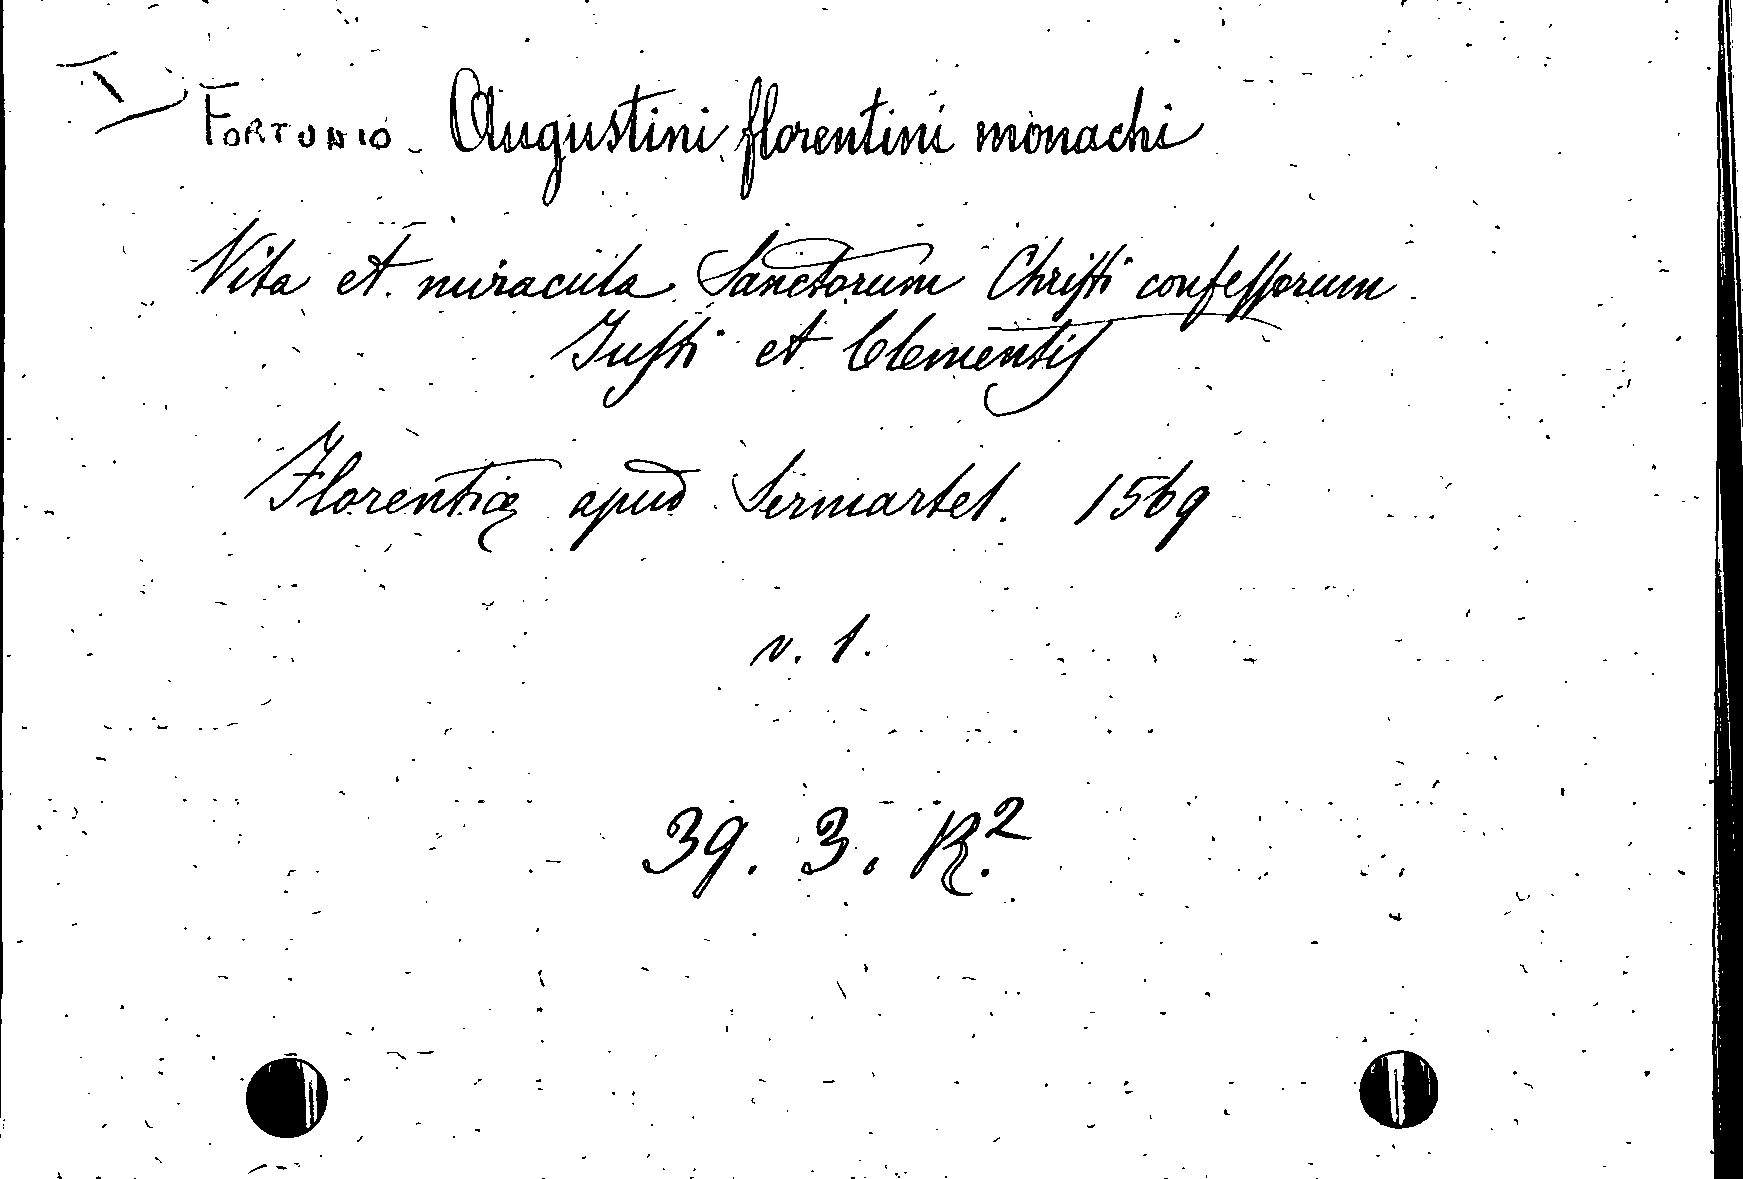 FORTUNIO - Augustini florentini monachi
Vita et miracula Sanctorum Chriſti confeſſorum
Juſti et Clementis
Florentiæ apud Sermartel. 1569
v. 1.
39. 3. R.²